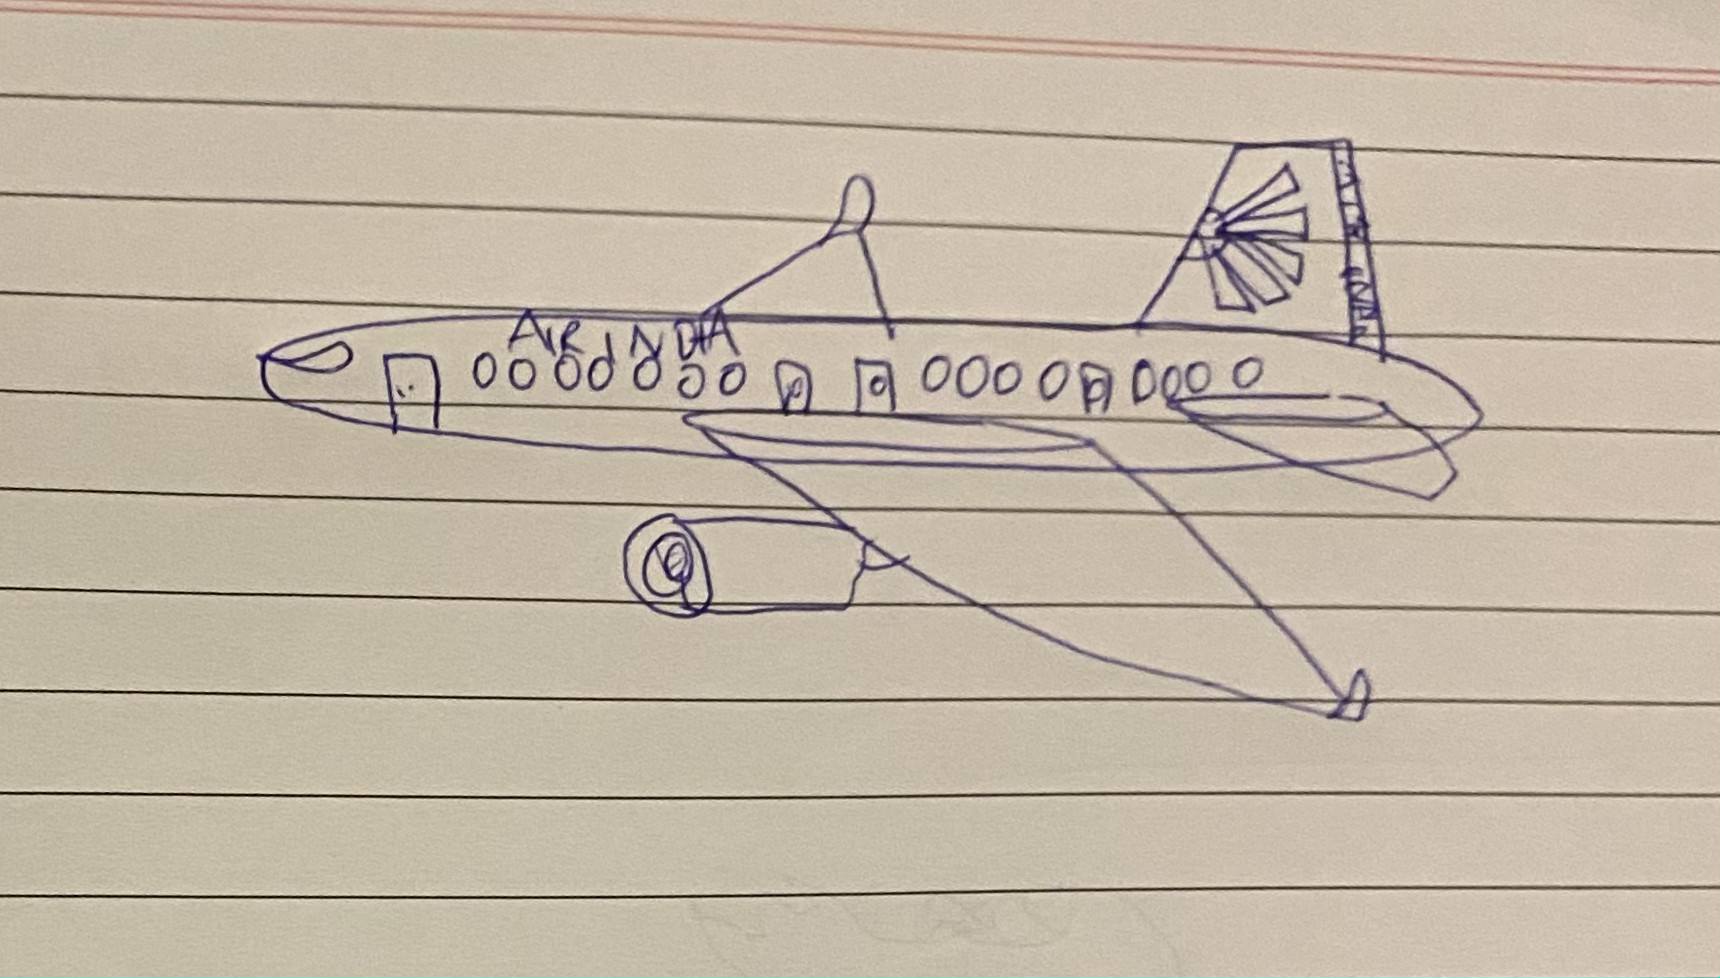 AIR INDIA